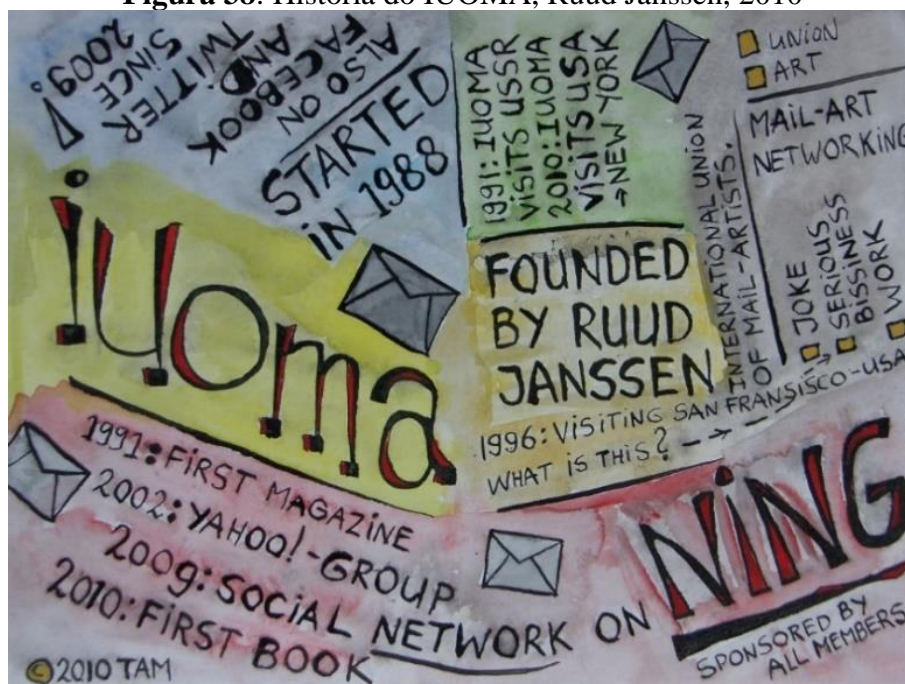 Figura 38: História do IUOMA, Ruud Janssen, 2010
ALSO ON
FACEBOOK
AND
TWITTER
SINCE
2009!
STARTED
iN 1988
1991: IUOMA
VISITS USSR
2010: IUOMA
VISITS USA
→NEW YORK
UNION
ART
MAIL-ART
NETWORKING
INTERNATIONAL UNION
OF MAIL-ARTISTS.
JOKE
SERIOUS
BISSINESS
WORK
iuoma
FOUNDED
BY RUUD
JANSSEN
1996: VISITING SAN FRANSISCO-USA
WHAT IS THIS?
1991: FiRST MAGAZINE
2002: YAHOO!-GROUP
2009: SOCIAL NETWORK ON NiNG
2010: FiRST BOOK
SPONSORED BY
ALL MEMBERS
©2010 TAM